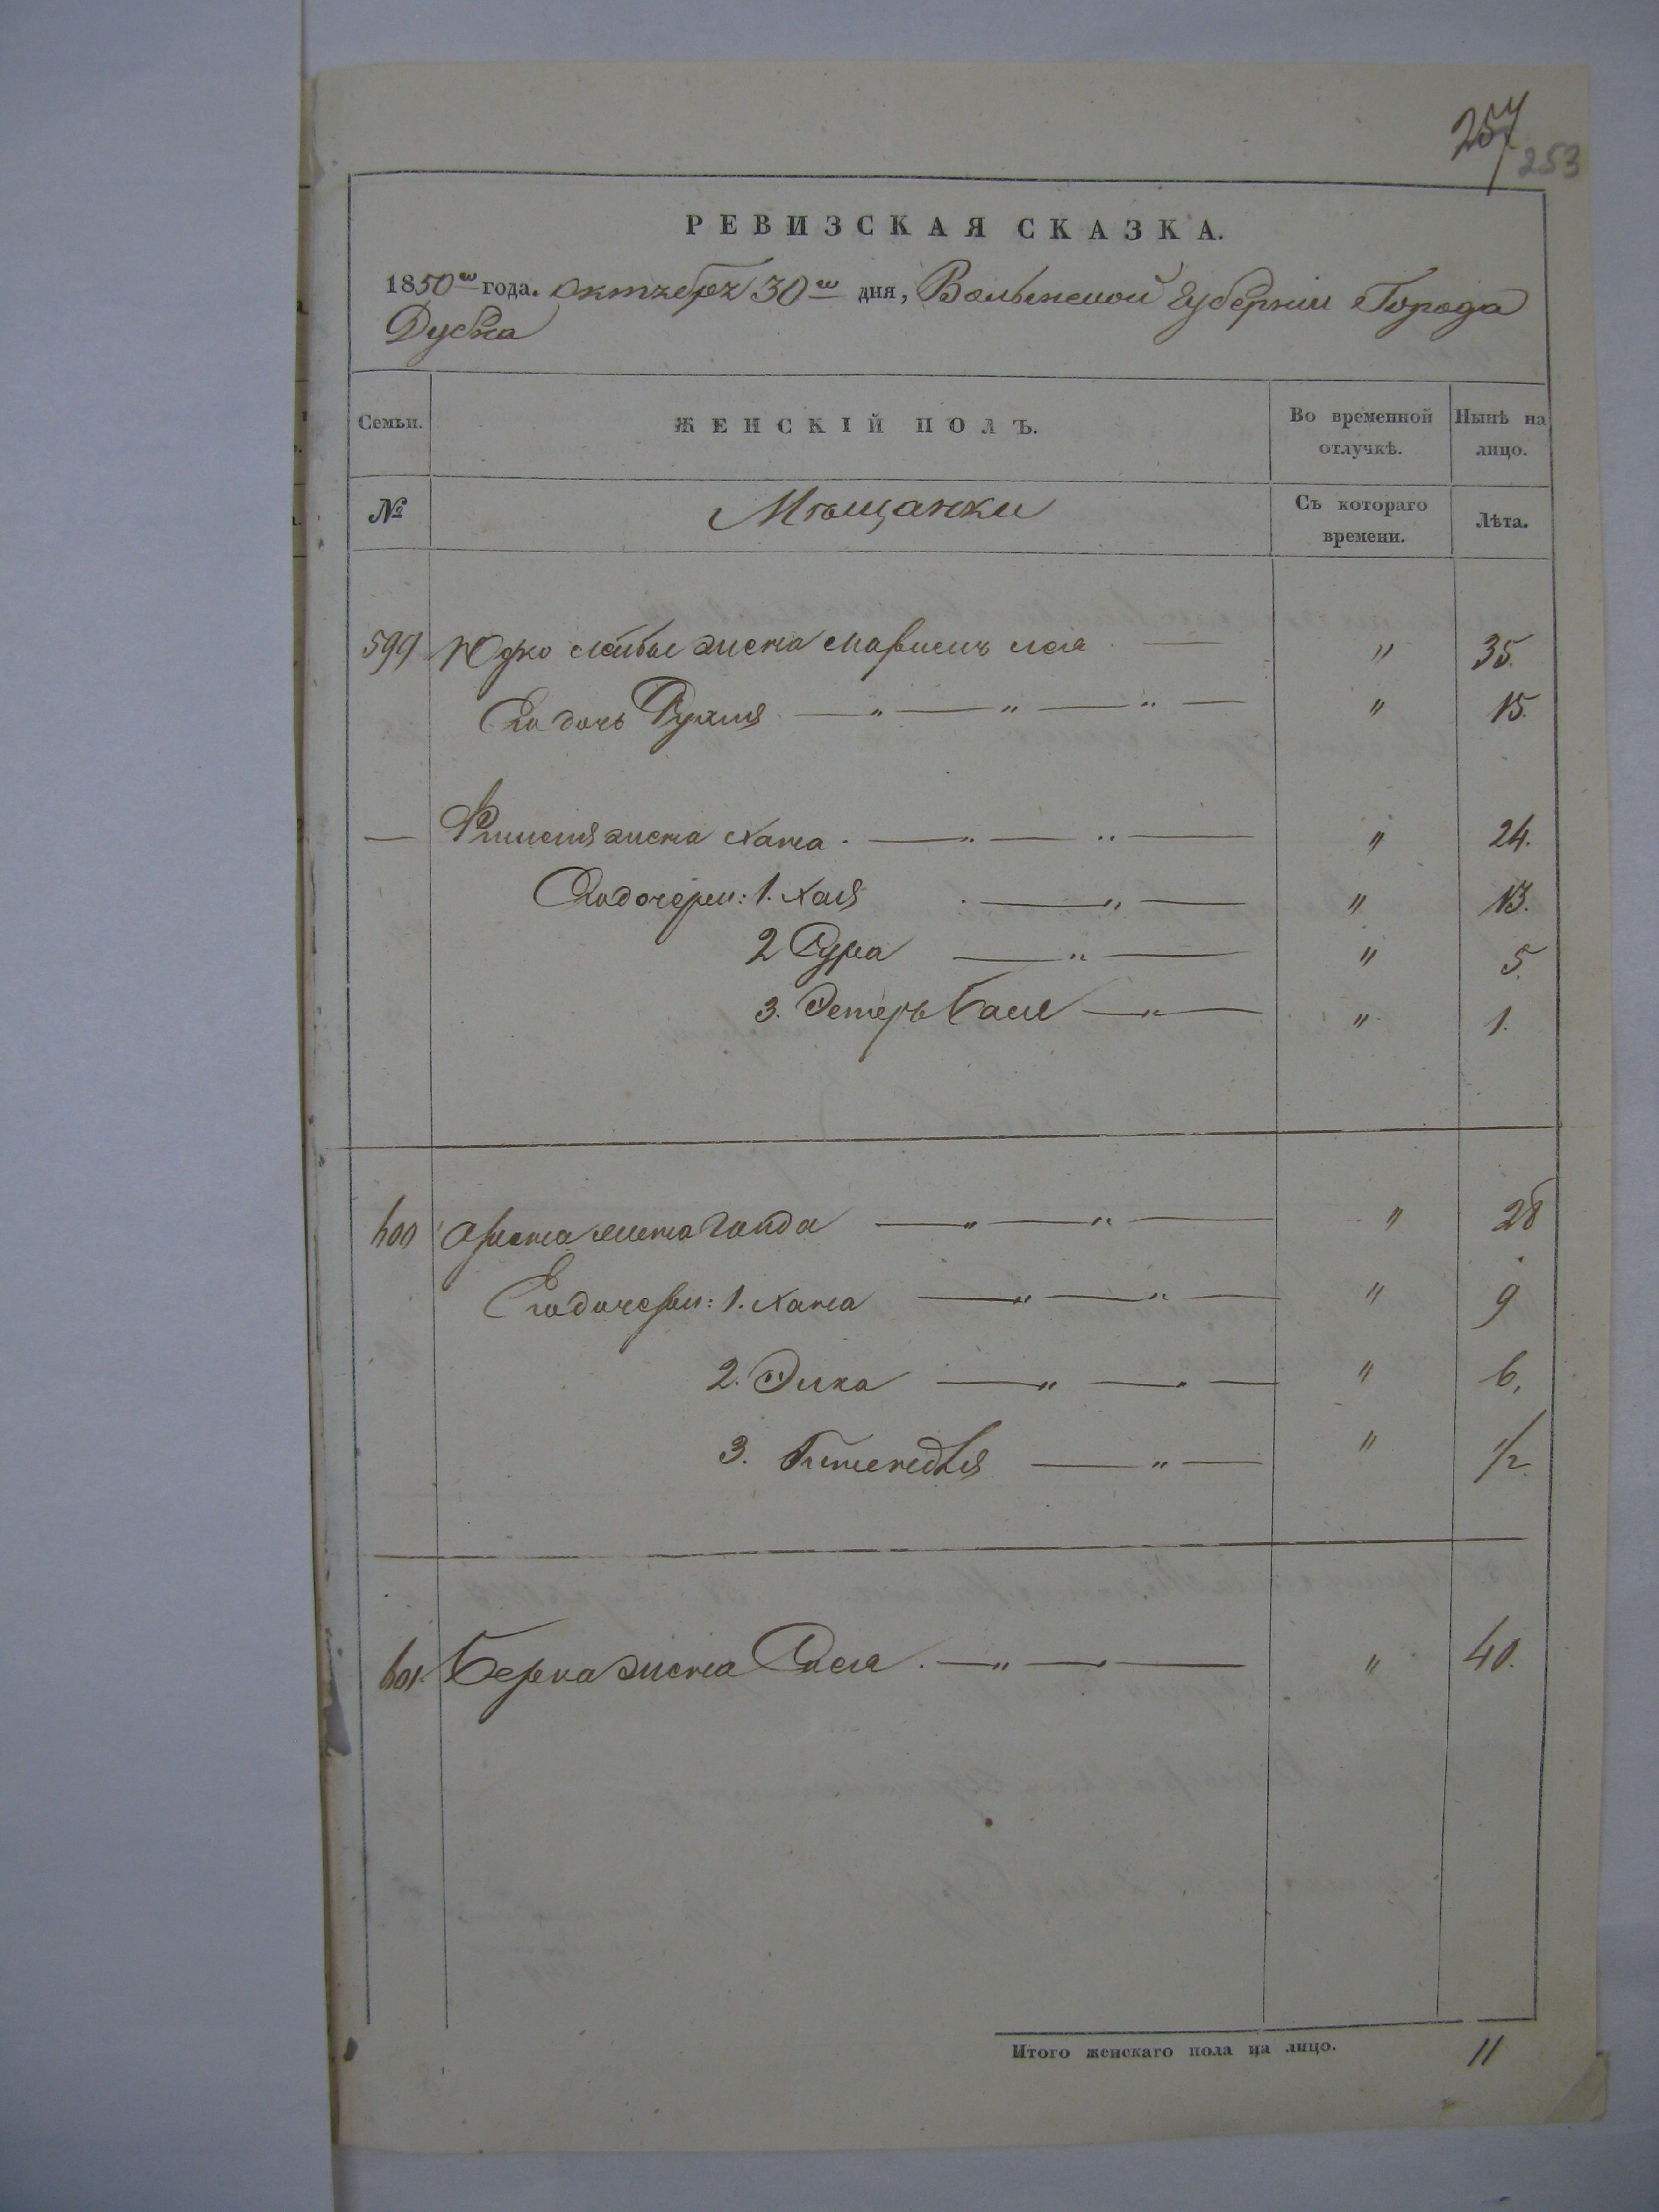 257
253
РЕВИЗСКАЯ СКАЗКА.
1850го года. октября 30го дня, Волынской Губернии Города
Дубна
Семьи.
ЖЕНСКІЙ ПОЛЪ.
Во временной отлучкѣ.
Нынѣ на лицо.
№
Мѣщанки
Съ котораго времени.
Лѣта.
599 Юдко жена " 35.
Его дочь Рухля " 15.
— жена Хана " 24.
Его дочери: 1. Хая " 13.
2 Сура " 5.
3. Эстеръ Бася " 1.
600 жена Гинда " 28
Его дочери: 1. Хана " 9
2. " 6.
3. " 1/2
601. Берка жена " 40.
Итого женскаго пола на лицо. 11